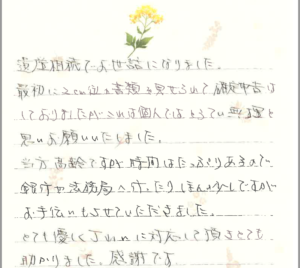 遺産相続でお世話になりました。
最初に2cm近い書類を見せられて確定申告は
しておりましたが これは個人ではとうてい無理と
思いお願いいたしました。
当方高齢ですが 時間はたっぷりあるので
銀行や法務局へ行ったり ほんの少しですが
お手伝いもさせていただきました。
とても優しく丁ねいに対応して頂きとても
助かりました。感謝です